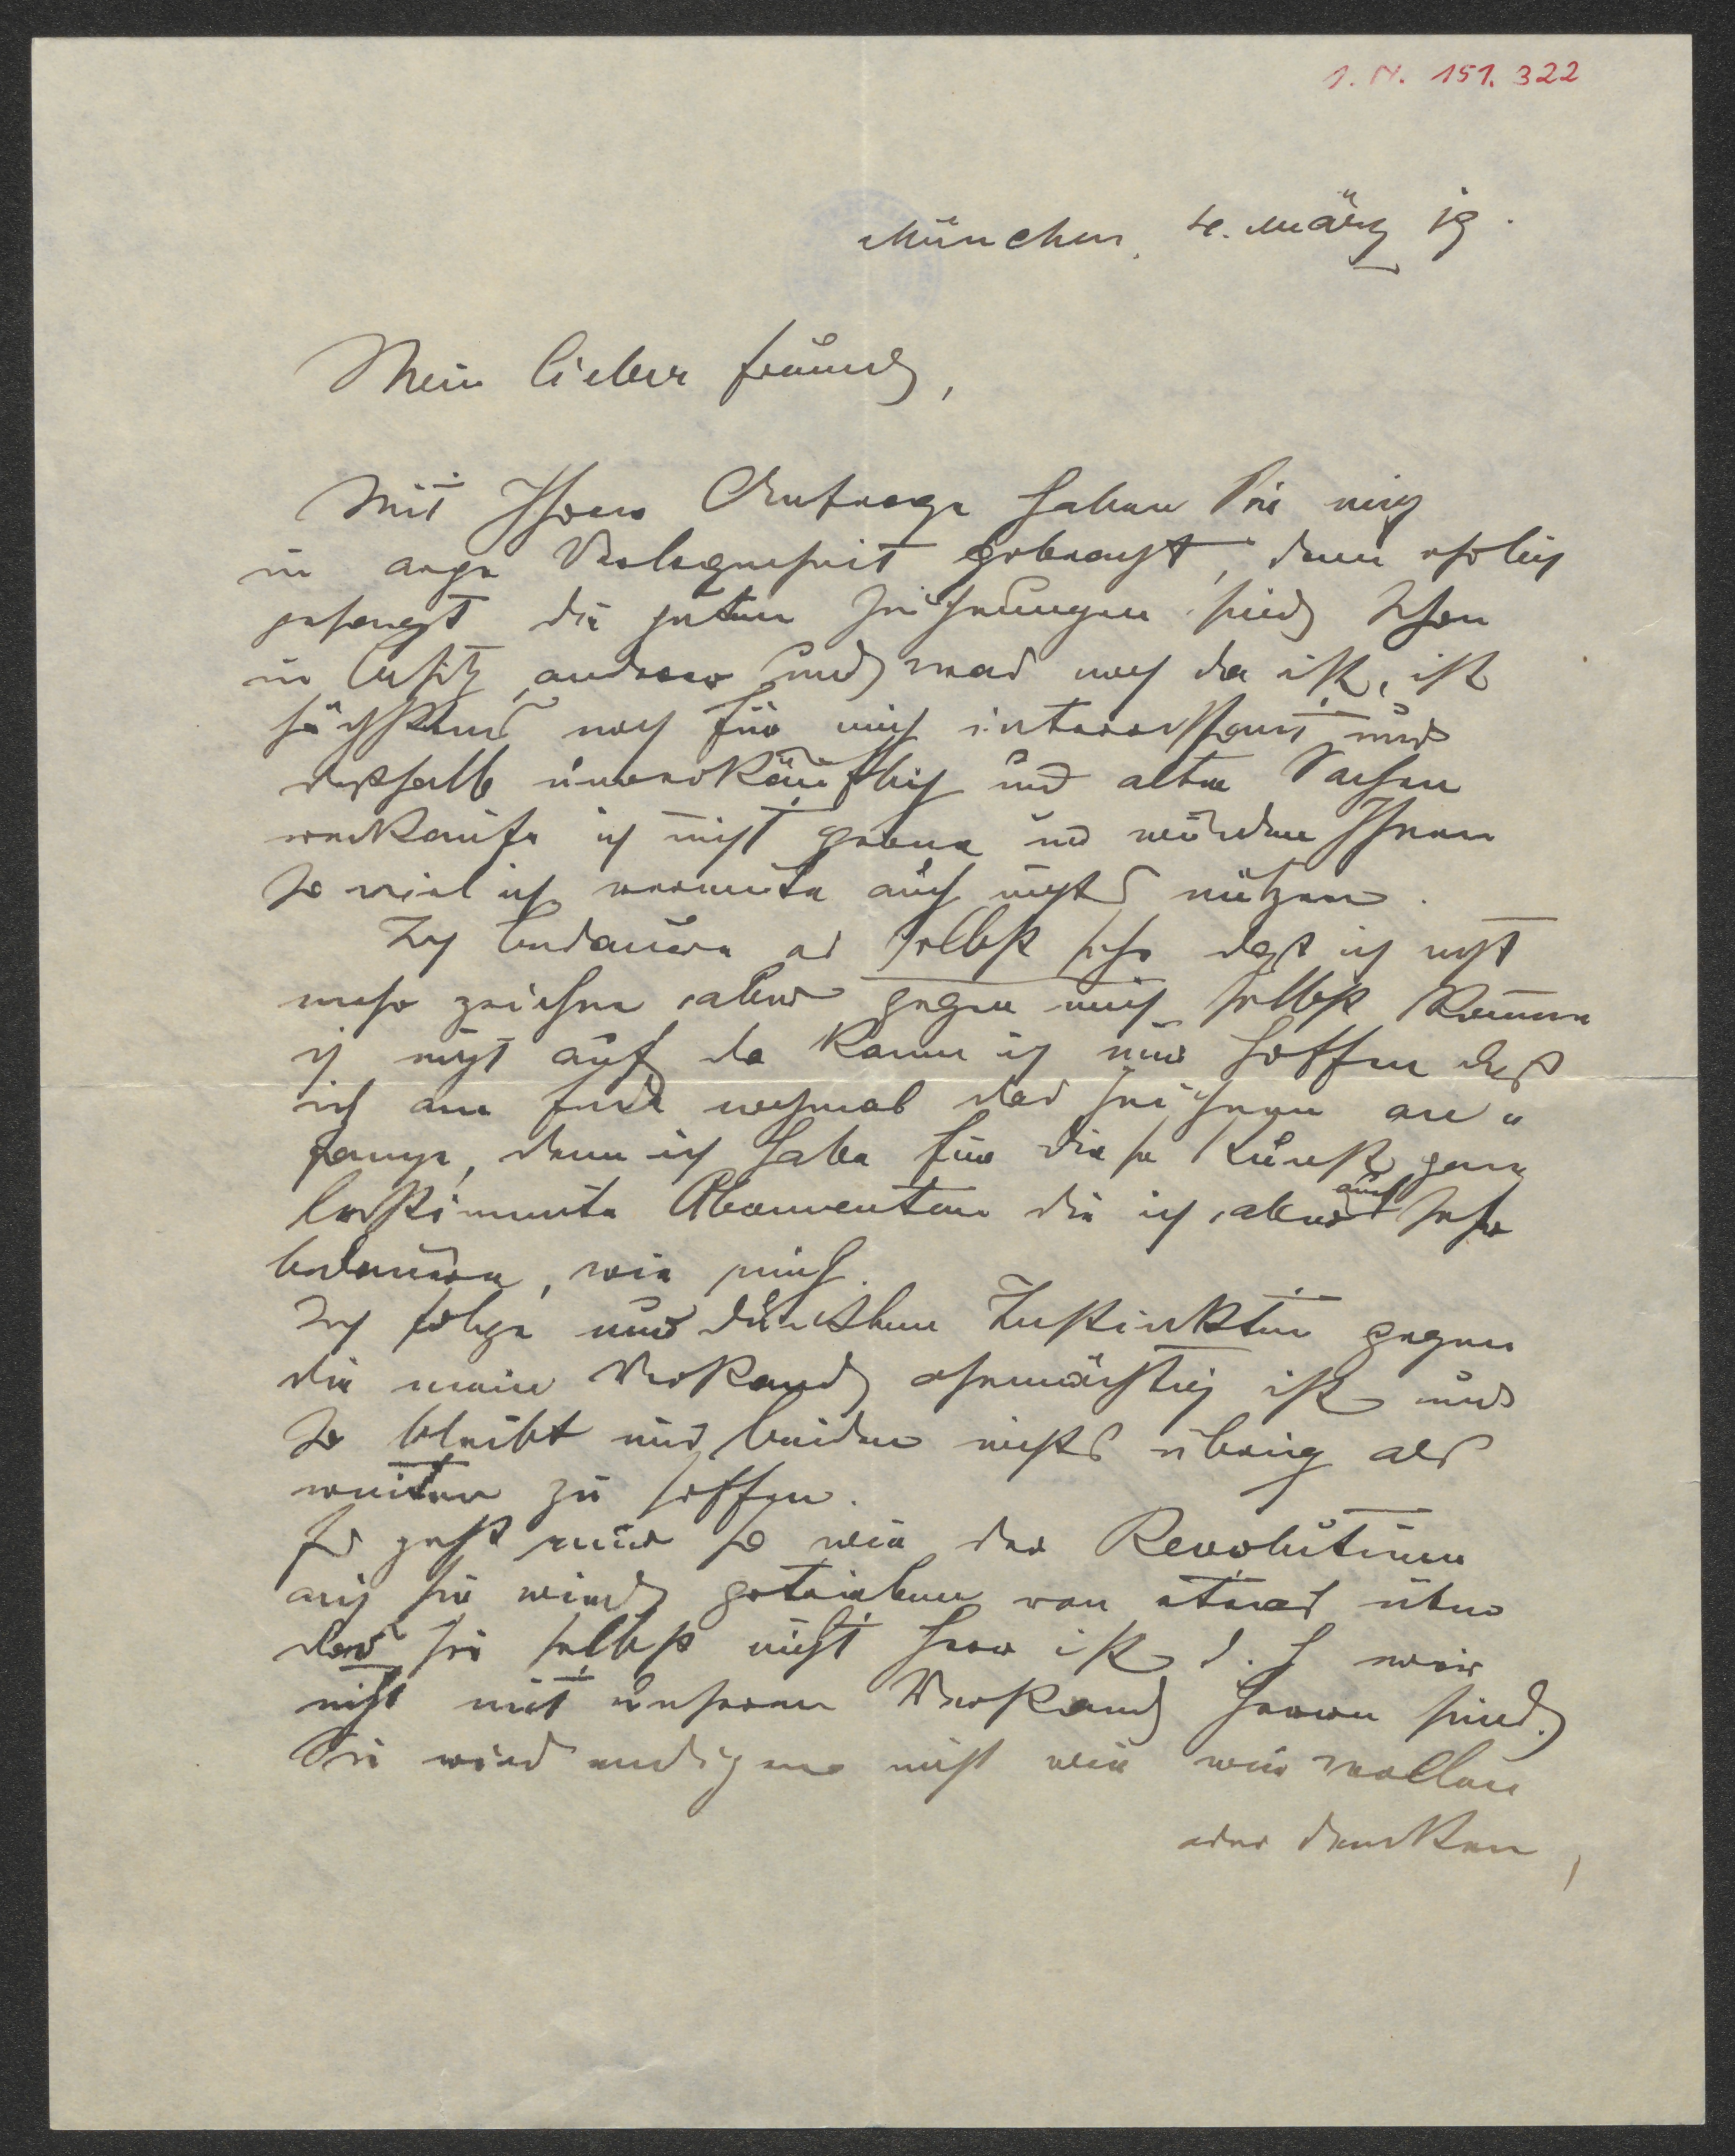 I. N. 151.322
München, 4. März 19.
Mein lieber Freund,
Mit Ihrer Anfrage haben Sie mich
in arge Verlegenheit gebracht, denn ehrlich
gesagt die guten Zeichnungen sind schon
in Besitz anderer und was noch da ist, ist
höchstens noch für mich interessant und
deßhalb unverkäuflich und alte Sachen
verkaufe ich nicht gerne und würden Ihnen
so viel ich vermute auch nichts nützen.
Ich bedauere es selbst sehr daß ich nicht
mehr zeichne aber gegen mich selbst komme
ich nicht auf da kann ich nur hoffen daß
ich am Ende nochmal das Zeichnen an„
fange, denn ich habe für diese Kunst ganz
bestimmte Abonnenten die ich aber auch sehr
bedauere, wie mich.
Ich folge nur dunklen Instinkten gegen
die mein Verstand ohnmächtig ist und
so bleibt uns beiden nichts übrig als
weiter zu hoffen.
Es geht mir so wie der Revolution
auch sie wird getrieben von etwas über
das sie selbst nicht Herr ist d. h wir
nicht mit unserem Verstand Herren sind.
Sie wird endigen nicht wie wir wollen
oder denken,